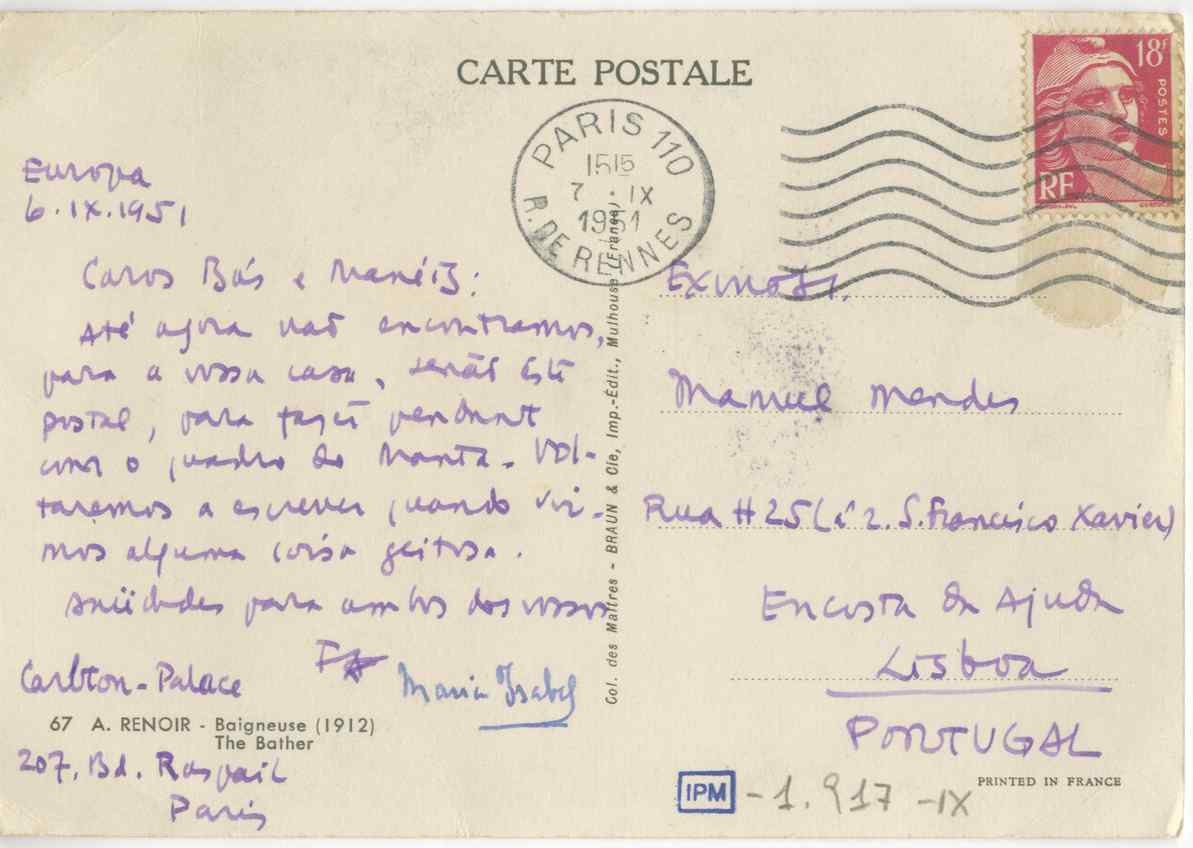 CARTE POSTALE
18f
POSTES
RF
PARIS 110
15 15
7 · IX
1951
R. DE RENNES
Europa
6.IX.1951
Caros Bás e
Até agora não encontramos,
para a vossa casa, senão este
postal, para fazer pendant
com o quadro do Manta. Vol-
taremos a escrever quando vir-
mos alguma coisa geitosa.
saüdades para ambos dos vossos
Maria Isabel
Carlton-Palace
67 A. RENOIR - Baigneuse (1912)
The Bather
207, Bd. Raspail
Paris
Col. des Maîtres - BRAUN & Cie, Imp.-Édit., Mulhouse (France)
Exmo Sr.
Manuel Mendes
Rua H 25 (á r. S. Francisco Xavier)
Encosta da Ajuda
Lisboa
PORTUGAL
PRINTED IN FRANCE
IPM -1.917 -IX